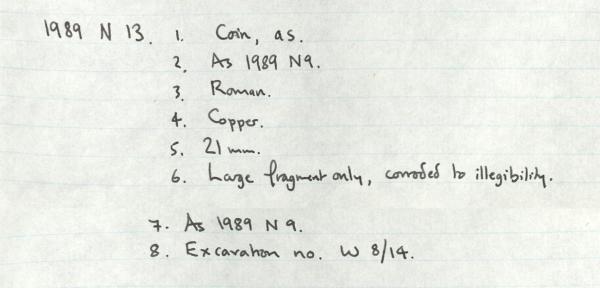 1989 N 13. 1. Coin, as.
2. As 1989 N9.
3. Roman.
4. Copper.
5. 21 mm.
6. Large fragment only, corroded to illegibility.
7. As 1989 N 9.
8. Excavation no. W 8/14.